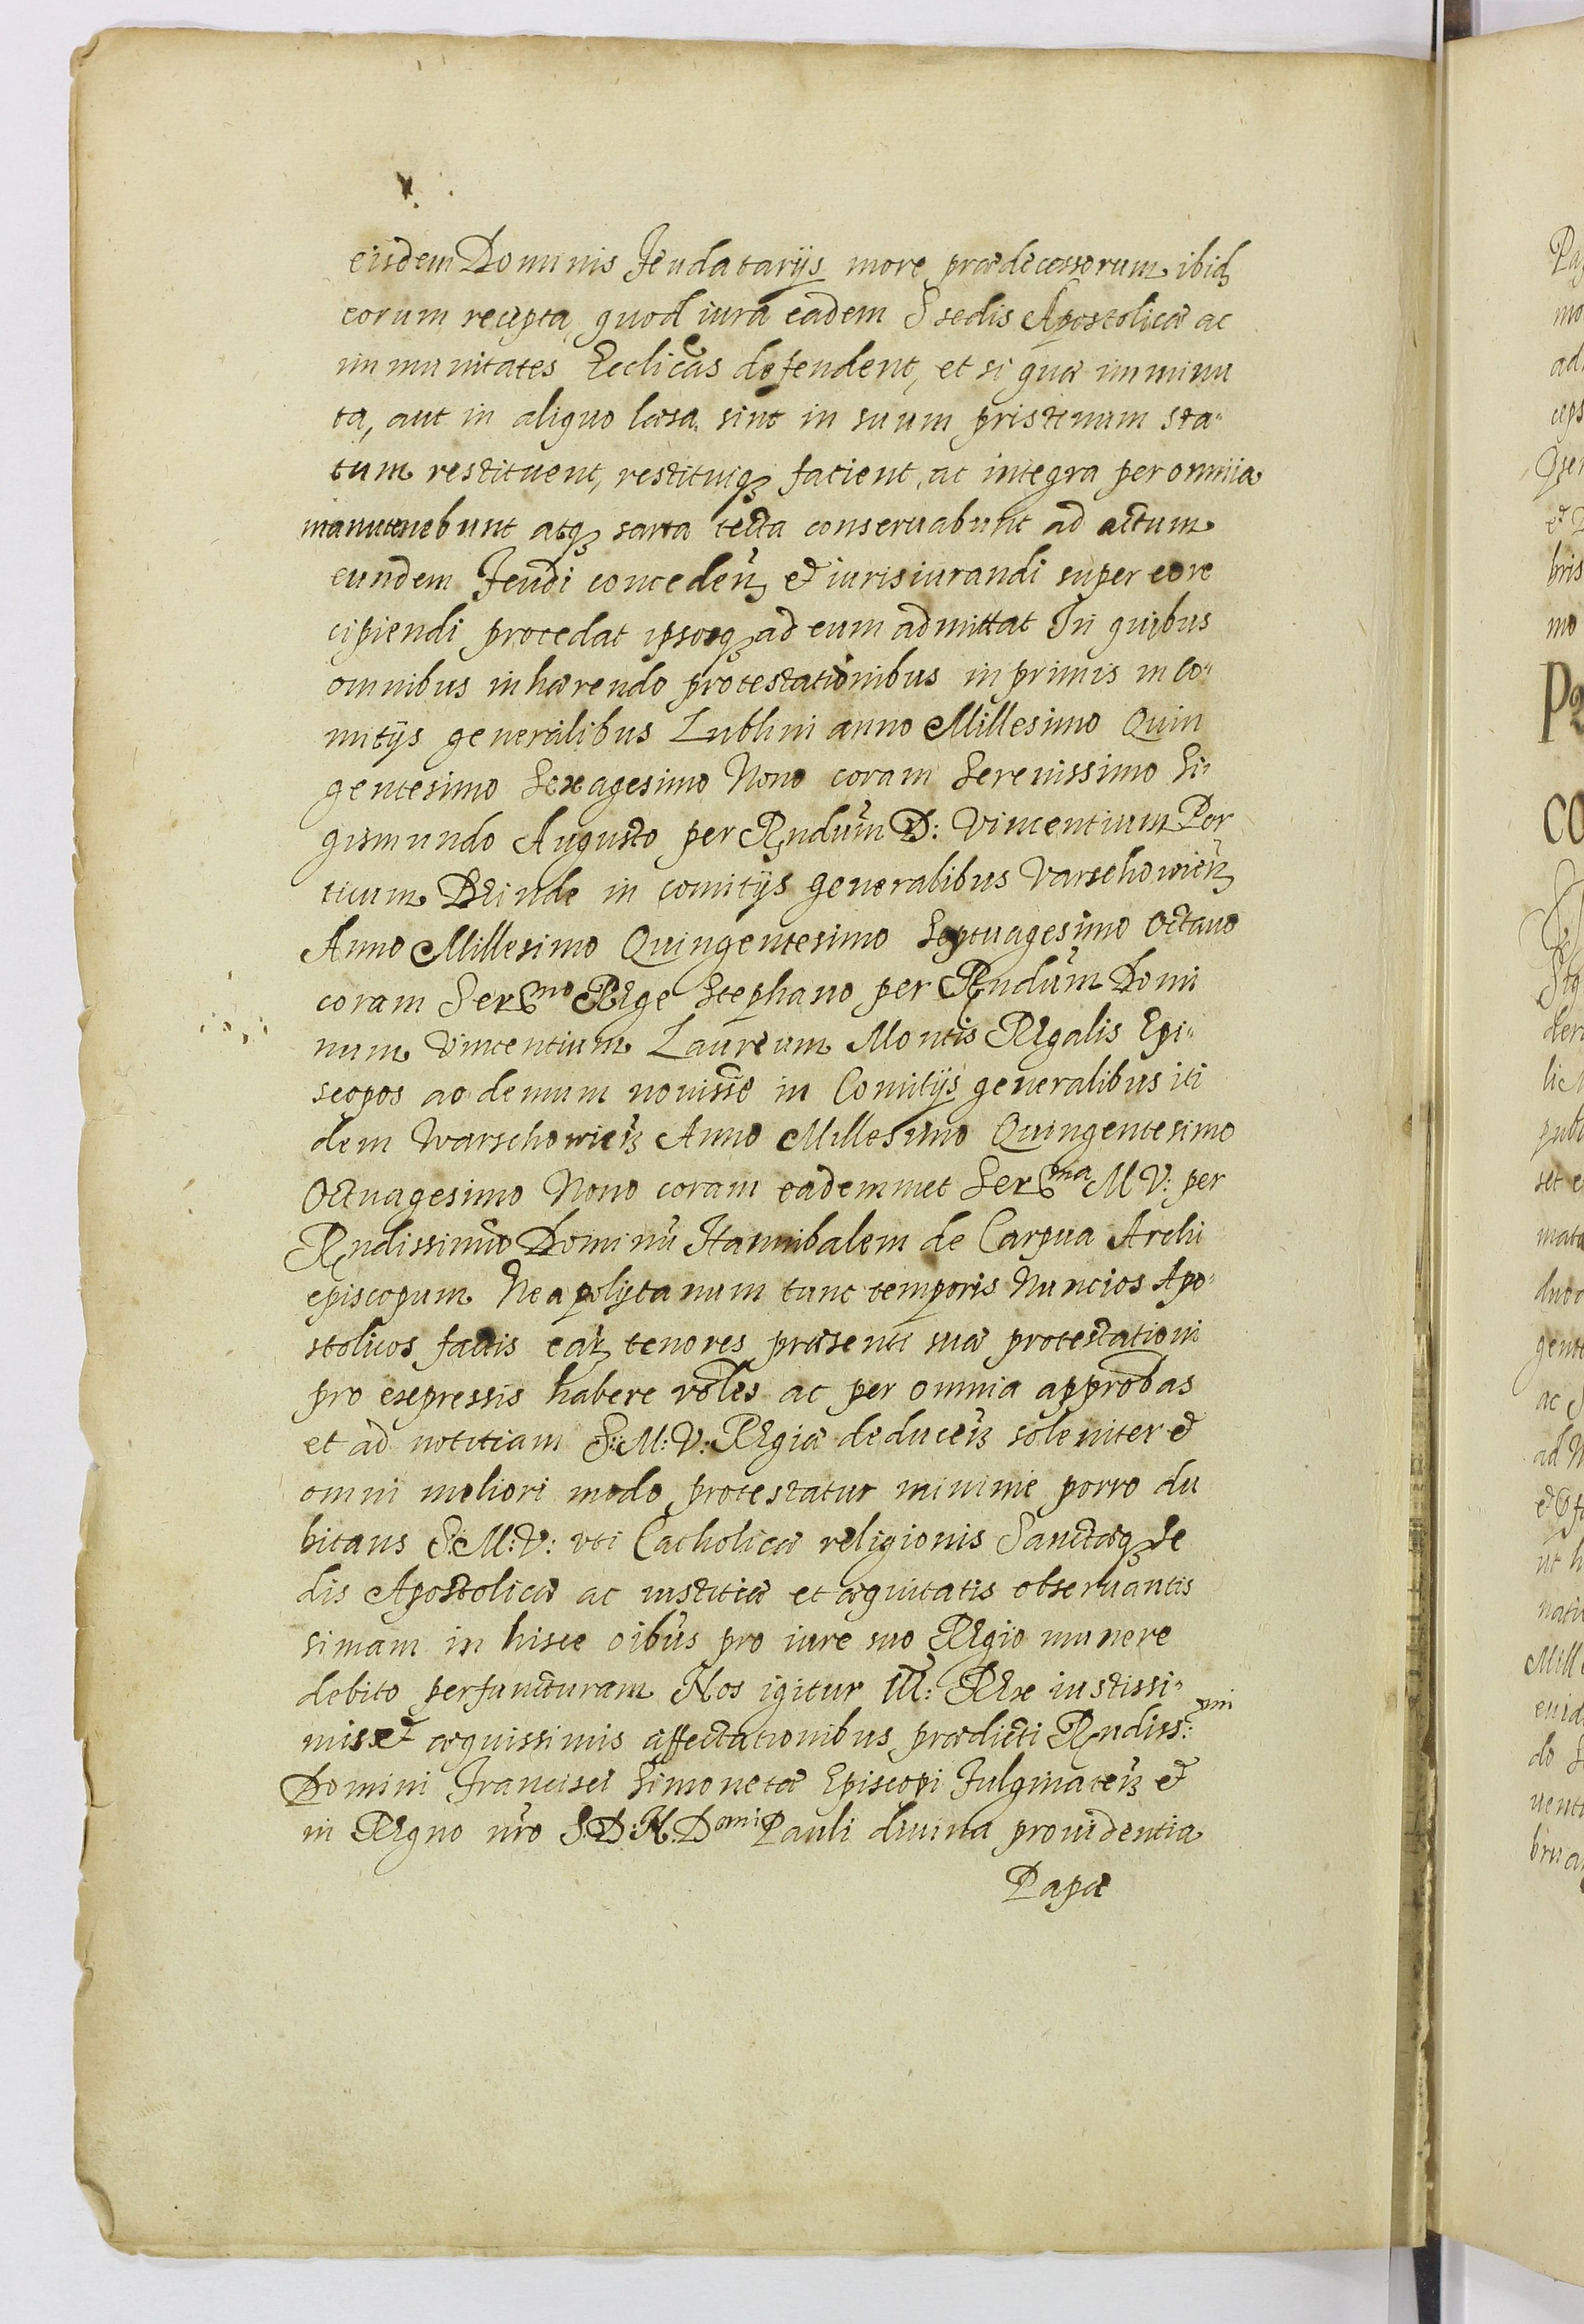 eisdem Dominis Feudatarijs more prædecessorum ibidẽ
eorum recepta, quod iura eadem S sedis Apostolicæ ac
immunitates Ecclicas defendent, et si quæ imminu
ta, aut in aliquo læsa sint in suum pristinum sta¨
tum restituent, restituiqꝫ facient, ac integra per omnia
manutenebunt atqꝫ sarta tecta conseruabunt ad actum
eundem Feudi conceden̄ et iurisiurandi super eo re
cipiendi procedat ipsosqꝫ ad eum admittat In quibus
omnibus inhærendo protestationibus in primis in Co¨
mitijs generalibus Lublini anno Millesimo Quin
gentesimo Sexagesimo Nono coram Serenissimo Si¨
gismundo Augusto per Rndum̃ D: Vincentium Por
ticum Deinde in comitijs generalibus Varschowien̄
Anno Millesimo Quingentesimo Septuagesimo Octauo
coram Sermo Rege Stephano per Rndum̃ Domi
num Vincentium Laureum Montis Regalis Epi¨
scopos ac demum nouissẽ in Comitijs generalibus iti
dem Warschowien̄ Anno Millesimo Quingentesimo
Octuagesimo Nono coram eademmet Serma M V: per
Rndissimũ Dominũ Hannibalem de Carpua Archi
episcopum Neapolytanum tunc temporis Nuncios Apo¨
stolicos factis eaꝝ tenores præsenti suæ protestationi
pro expressis habere vol̃es ac per omnia approb̃as
et ad notitiam S: M: V: Regiæ deducen̄ soleniter et
omni meliori modo protestatur minime porro du
bitans S: M: V: vti Catholicæ religionis Sanctæqꝫ Se
dis Apostolicæ ac iustitiæ et æquitatis obseruantis
simam in hisce oib̃us pro iure suo Regio munere
debito perfuncturam Nos igitur III: Rex iustissi¨
mis et æquissimis affectationibus prædicti Rndiss:mi
Domini Francisci Simonetæ Episcopi Fulginaten̄ et
in Regno nr̃o S. D: N. Domi Pauli diuina prouidentia
Papæ